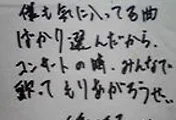 僕も気に入ってる曲
ばかり選んだから、
コンサートの時、みんなで
歌ってもりあがろうぜ。